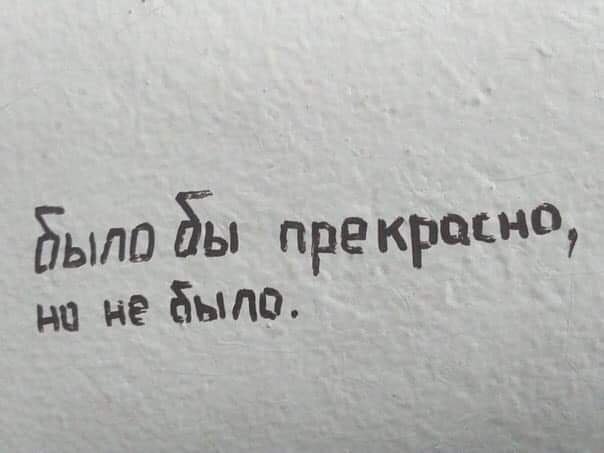 было бы прекрасно,
но не было.